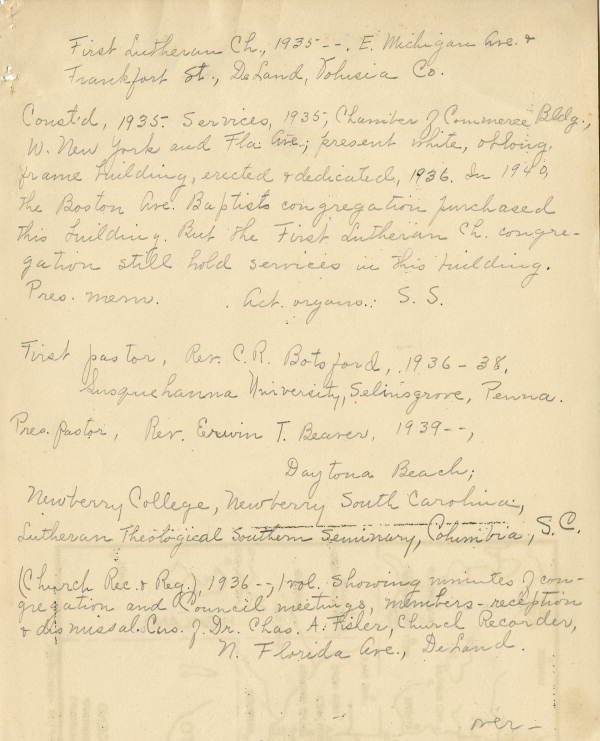 First Lutheran Ch., 1935--. E. Michigan Ave. &
Frankfort St., DeLand, Volusia Co.
Const'd, 1935. Services, 1935, Chamber of Commerce Bldg.,
W. New York and Fla. Ave.; present white, oblong,
frame building, erected & dedicated, 1936. In 1940,
the Boston Ave. Baptists congregation purchased
this building. But the First Lutheran Ch. congre-
gation still hold services in this building.
Pres. mem. . Act. organs.: S. S.
First pastor, Rev. C.R. Botsford, 1936-38,
Susquehanna University, Selinsgrove, Penna.
Pres. pastor, Rev. Erwin T. Beaver, 1939--,
Daytona Beach;
Newberry College, Newberry South Carolina,
Lutheran Theological Southern Seminary, Columbia, S.C.
(Church Rec. & Reg.), 1936--, 1 vol. Showing minutes of con-
gregation and Council meetings, members-reception
& dismissal. Cus. of Dr. Chas. A. Fisher, Church Recorder,
N. Florida Ave., DeLand.
over-